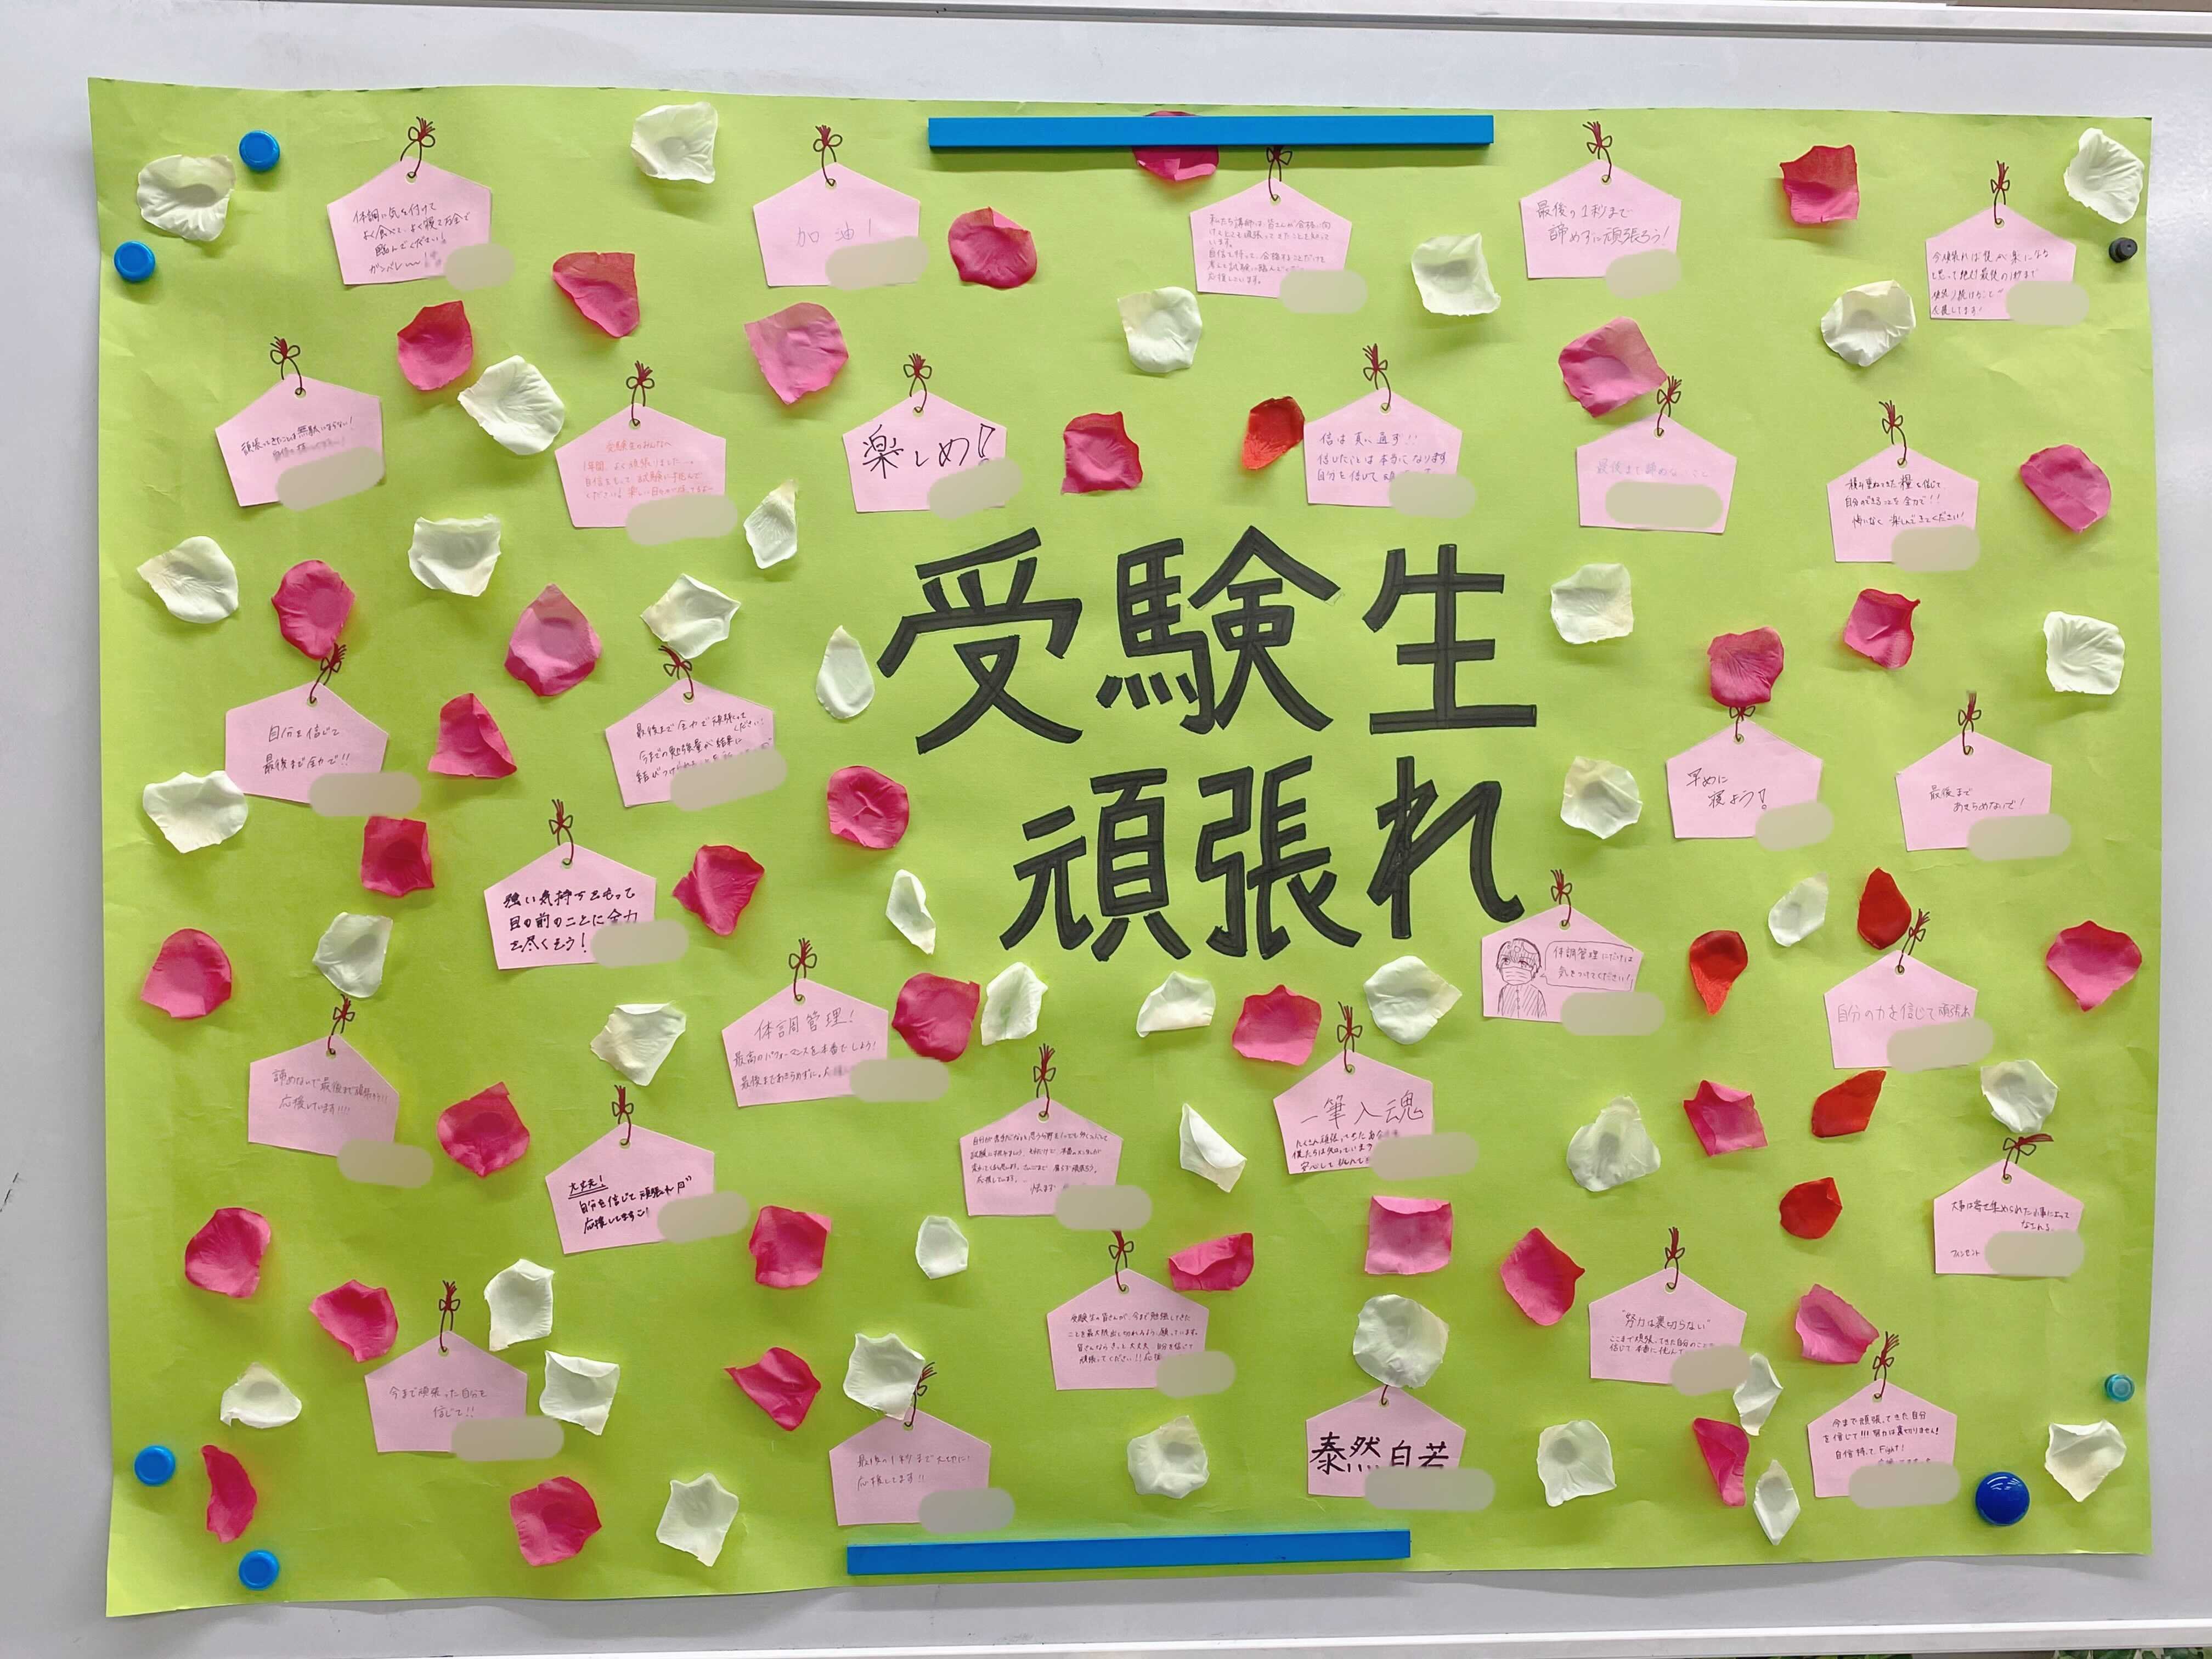 体調に気を付けて
よく食べて、よく寝て万全で
臨んでください!
ガンバレ〜〜!
加油!
私たち講師は、皆さんが合格に向
けてとても頑張ってきたことを知って
います。
自信を持って、合格することだけを
考えて試験に臨んで
応援しています。
最後の1秒まで
諦めずに頑張ろう!
今頑張れば後が楽になる
と思って絶対最後の1秒まで
頑張り続けること
応援してます!
頑張ってきたことは無駄にならない!
自信を持って
受験生のみんなへ
1年間、よく頑張りました
自信をもって試験に挑んで
ください!
楽しめ!
信は真に通ず!!
信じたことは本当になります
自分を信じて
最後まで諦めないこと
積み重ねてきた糧を信じて
自分のできることを全力で!!
悔いなく楽しんできてください!
受験生
頑張れ
自分を信じて
最後まで全力で!!
最後まで全力で頑張って
ください!
今までの勉強量が結果に
結びつけられることを
早めに
寝よう!
最後まで
あきらめないで!
強い気持ちをもって
目の前のことに全力
を尽くそう!
体調管理にだけは
気をつけてください!
体調管理!
最高のパフォーマンスを本番でしよう!
最後まであきらめずに。
自分の力を信じて頑張れ
諦めないで最後まで頑張ろう!!
応援しています!!!
一筆入魂
たくさん頑張ってきた
僕たちは知っています
安心して挑んで
大丈夫!
自分を信じて頑張れ
応援してます!
応援しています。
大事は寄せ集められた小事によって
なされる。
フィンセント
受験生の皆さんが、今まで勉強してきた
ことを最大限出し切れるよう、願っています。
皆さんならきっと大丈夫。自分を信じて
頑張ってください!!応援
"努力は裏切らない"
ここまで頑張ってきた自分のことを
信じて本番に挑んで
今まで頑張った自分を
信じて!!
最後の1秒まで大切に!
応援してます!!
泰然自若
今まで頑張ってきた自分
を信じて!!!努力は裏切りません!
自信持って Fight!